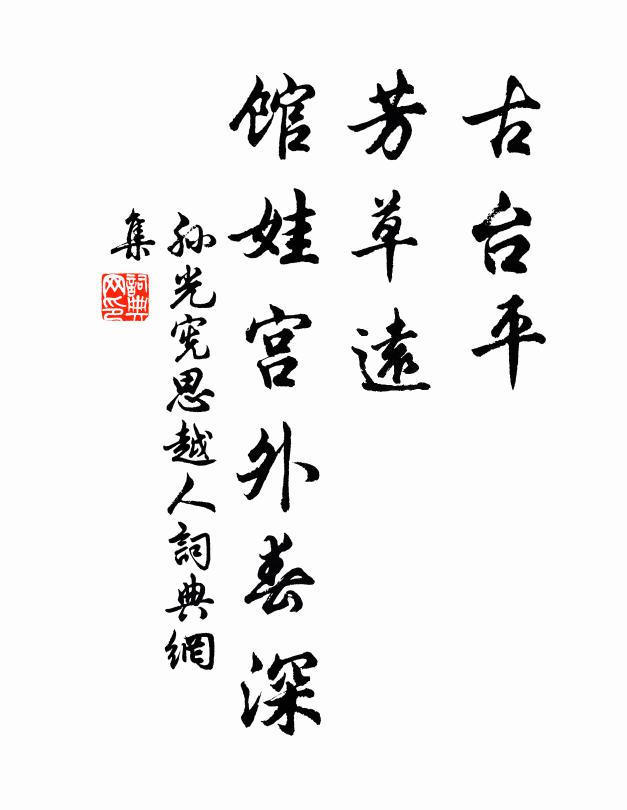 古台平
芳草遠
馆娃宫外春深
孙光宪思越人詞典網
集
詞典
网印